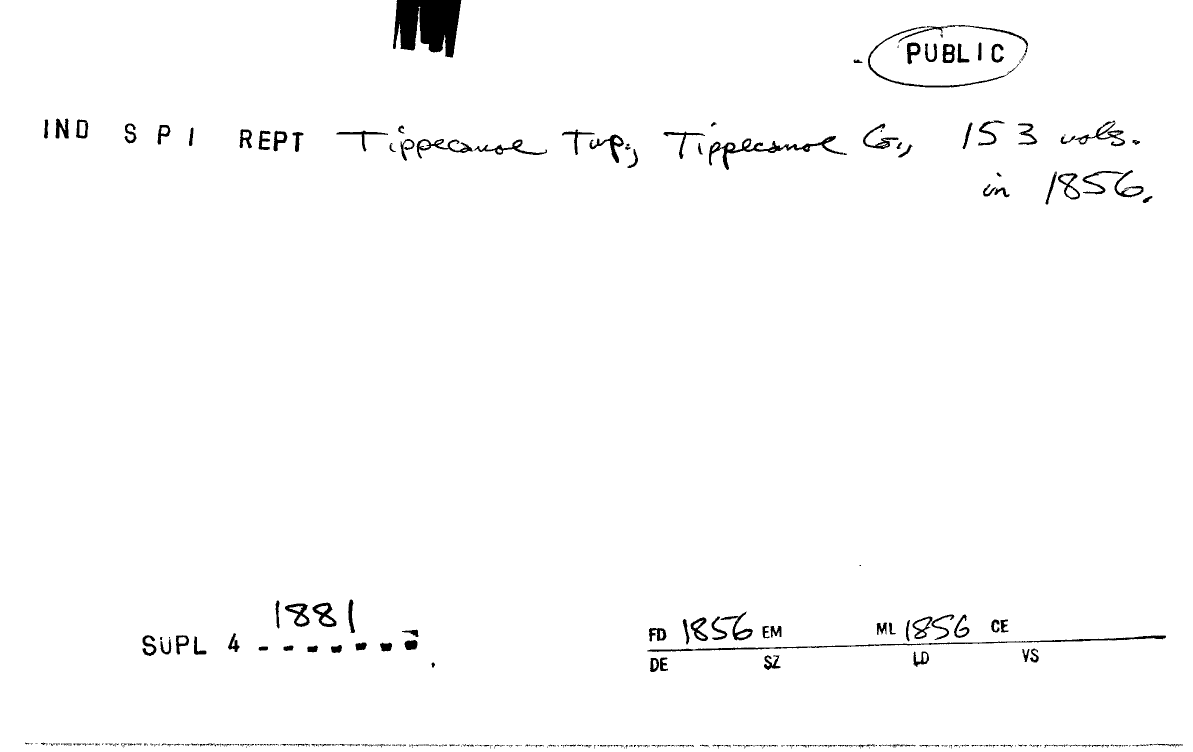 PUBLIC
IND S P I REPT Tippecanoe Twp., Tippecanoe Co., 153 vols.
in 1856.
1881
SUPL 4 -------
FD 1856 EM ML 1856 CE
DE SZ LD VS